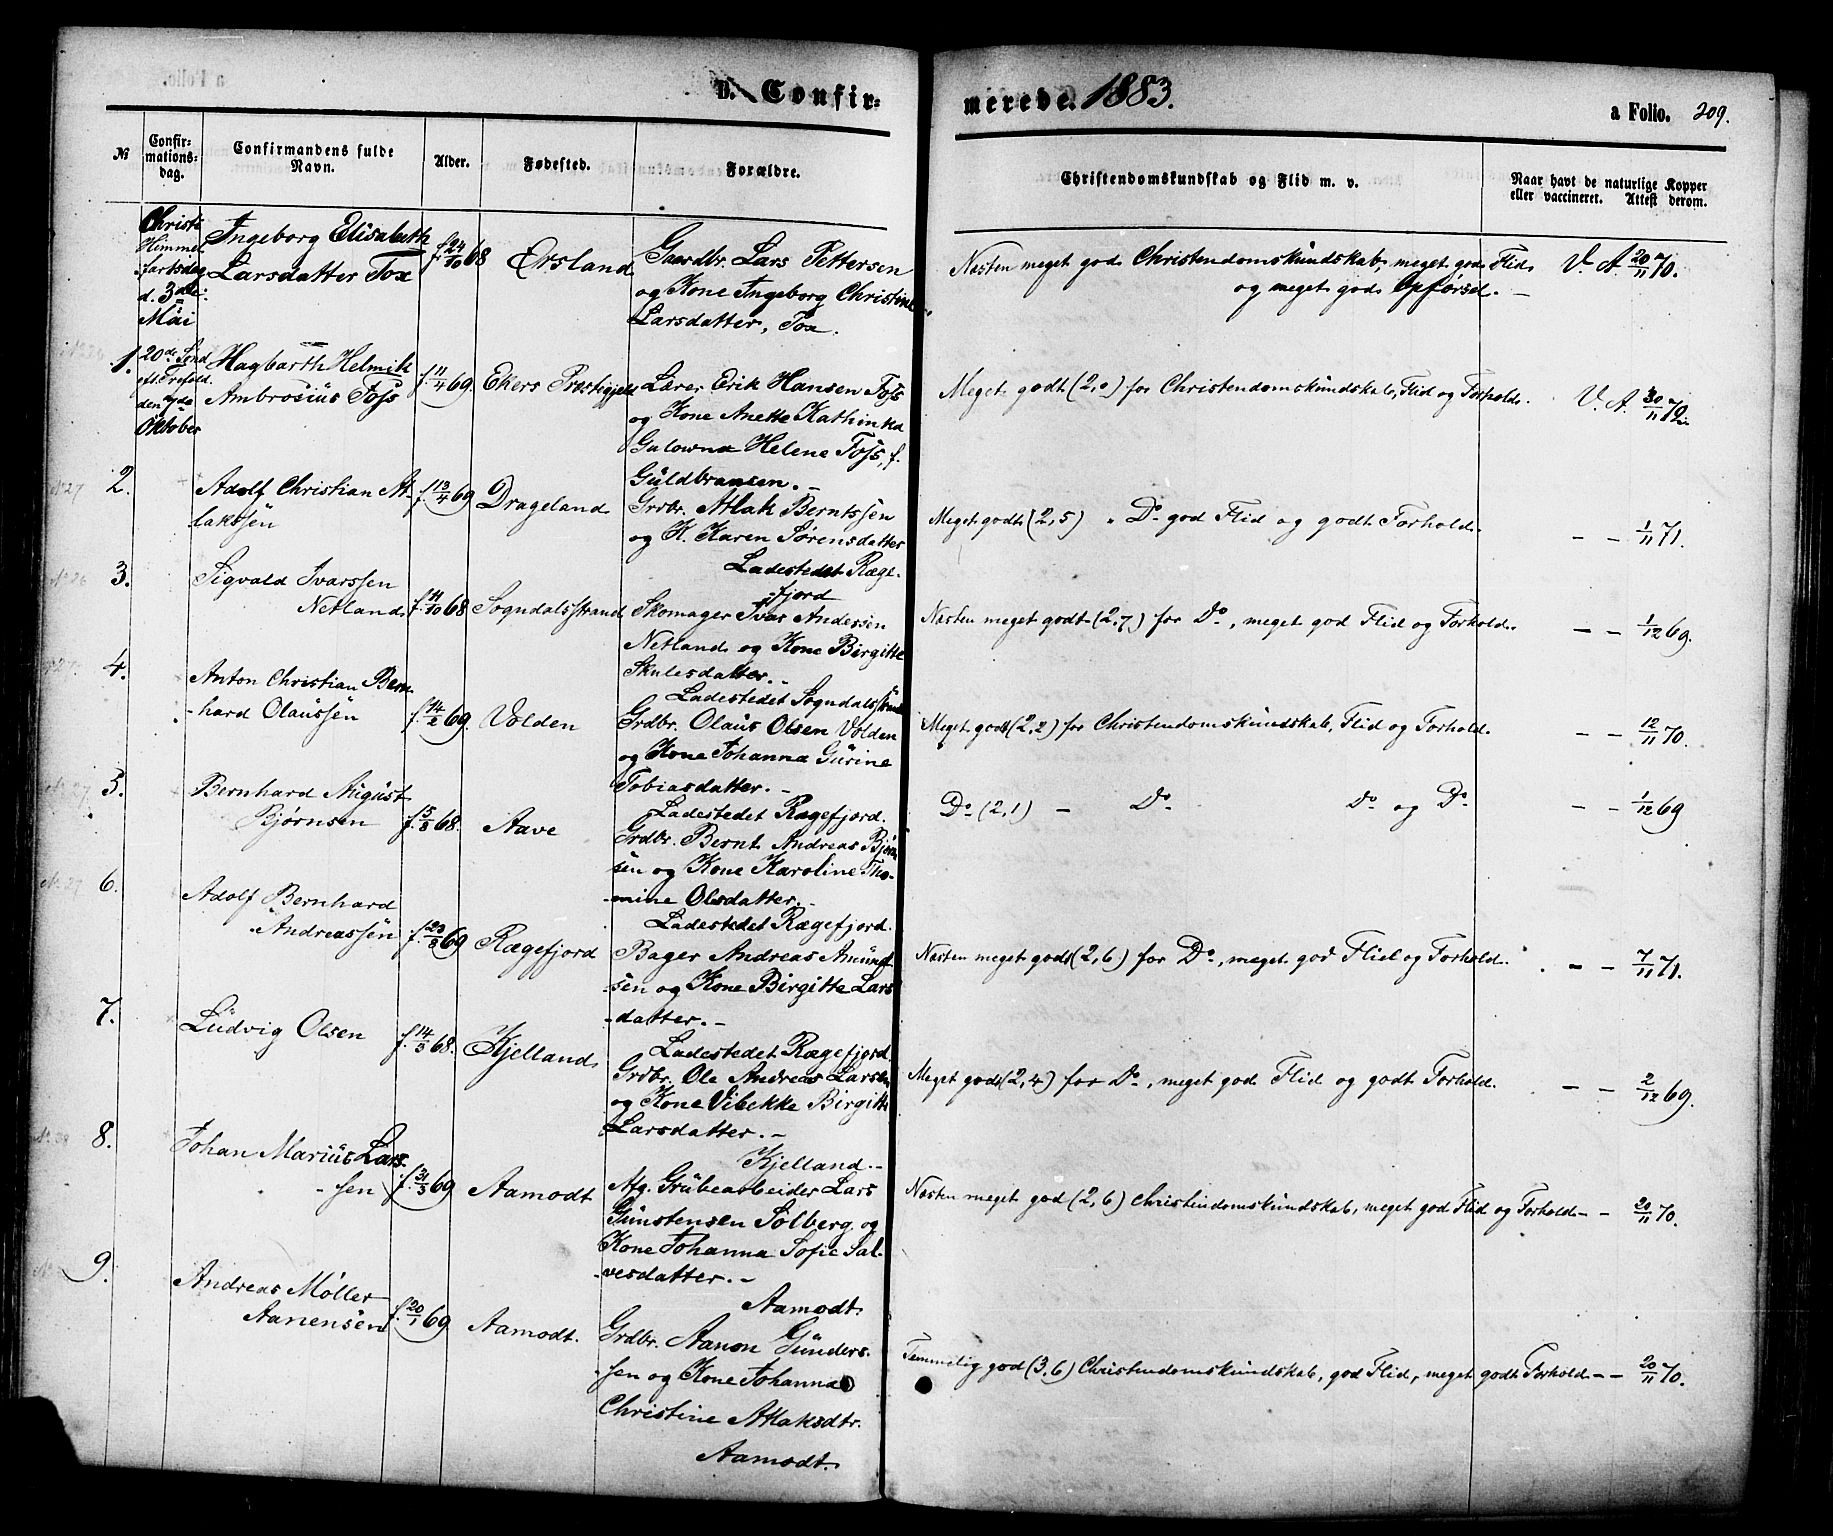 D. Confir-
merede. 1883.
a Folio. 209.
№
Confir-
mations-
dag.
Confirmandens fulde
Navn.
Alder.
Fødested.
Forældre.
Christendomskundskab og Flid m. v.
Naar havt de naturlige Kopper
eller vaccineret. Attest derom.
Christi
Himmel
fartsdag
d. 3die
Mai
Ingeborg Elisabeth
Larsdatter Tox
f. 24/10 68
Ørsland
Gaardbr. Lars Pettersen
og Kone Ingeborg Christine
Larsdatter, Tox.
Næsten meget god Christendomskundskab, meget god Flid
og meget god Opførsel. —
V. A. 20/11 70.
1.
20de Sønd
eft. Trefold.
den 7de
Oktober
Hagbarth Helmik
Ambrosius Foss
f. 11/4 69
Ekers Præstegjeld
Lærer Erik Hansen Foss
og Kone Anette Kathinka
Galowna Helene Foss, f.
Guldbransen. —
Meget godt (2,0) for Christendomskundskab, Flid og Forhold.
V. A. 30/11 72.
2.
Adolf Christian At-
laksen
f. 13/4 69
Drageland
Grdbr. Atlak Berntssen
og K. Karen Sørensdatter
Ladestedet Ræge-
fjord
Meget godt (2,5) " Do god Flid og godt Forhold.
— — 1/11 71.
3.
Sigvald Ivarssen
Netland
f. 11/10 68
Sogndalsstrand
Skomager Ivar Andersen
Netland og Kone Birgitte
Skulesdatter. —
Ladestedet Sogndalsstrand
Næsten meget godt (2,7) for Do, meget god Flid og Forhold.
— — 1/12 69.
4.
Anton Christian Bern-
hard Olaussen
f. 14/2 69.
Volden
Grdbr. Olaus Olsen Volden
og Kone Johanna Gurine
Tobiasdatter. —
Ladestedet Rægefjord.
Meget godt (2,2) for Christendomskundskab, Flid og Forhold.
— — 12/11 70.
5.
Bernhard August
Bjørnsen
f. 15/8 68.
Aave
Grdbr. Bernt Andreas Bjørn
sen og Kone Karoline Tho-
mine Olsdatter. —
Ladestedet Rægefjord.
Do (2,1) — Do Do og Do
— — 1/12 69
6.
Adolf Bernhard
Andreassen
f. 23/8 69
Rægefjord
Bager Andreas Amund-
sen og Kone Birgitte Lars
datter. —
Ladestedet Rægefjord.
Næsten meget godt (2,6) for Do, meget god Flid og Forhold.
— — 7/11 71.
7.
Ludvig Olsen
f. 14/3 68.
Kjelland
Grdbr. Ole Andreas Larsen
og Kone Vibekke Birgitte
Larsdatter. —
Kjelland. —
Meget godt (2,4) for Do, meget god Flid og godt Forhold.
— — 2/12 69.
8.
Johan Marius Lars-
sen
f. 31/3 69
Aamodt
Afg. Grubearbeider Lars
Gunstensen Solberg og
Kone Johanna Sofie Sal-
vesdatter. —
Aamodt.
Næsten meget god (2,6) Christendomskundskab, meget god Flid og Forhold — — 20/11 70.
9.
Andreas Møller
Aanensen
f. 20/1 69
Aamodt.
Grdbr. Aanon Gunders-
sen og Kone Johanna
Christine Atlaksdtr.
Aamodt.
Temmelig god (3,6) Christendomskundskab, god Flid, meget godt Forhold — — 20/11 70.